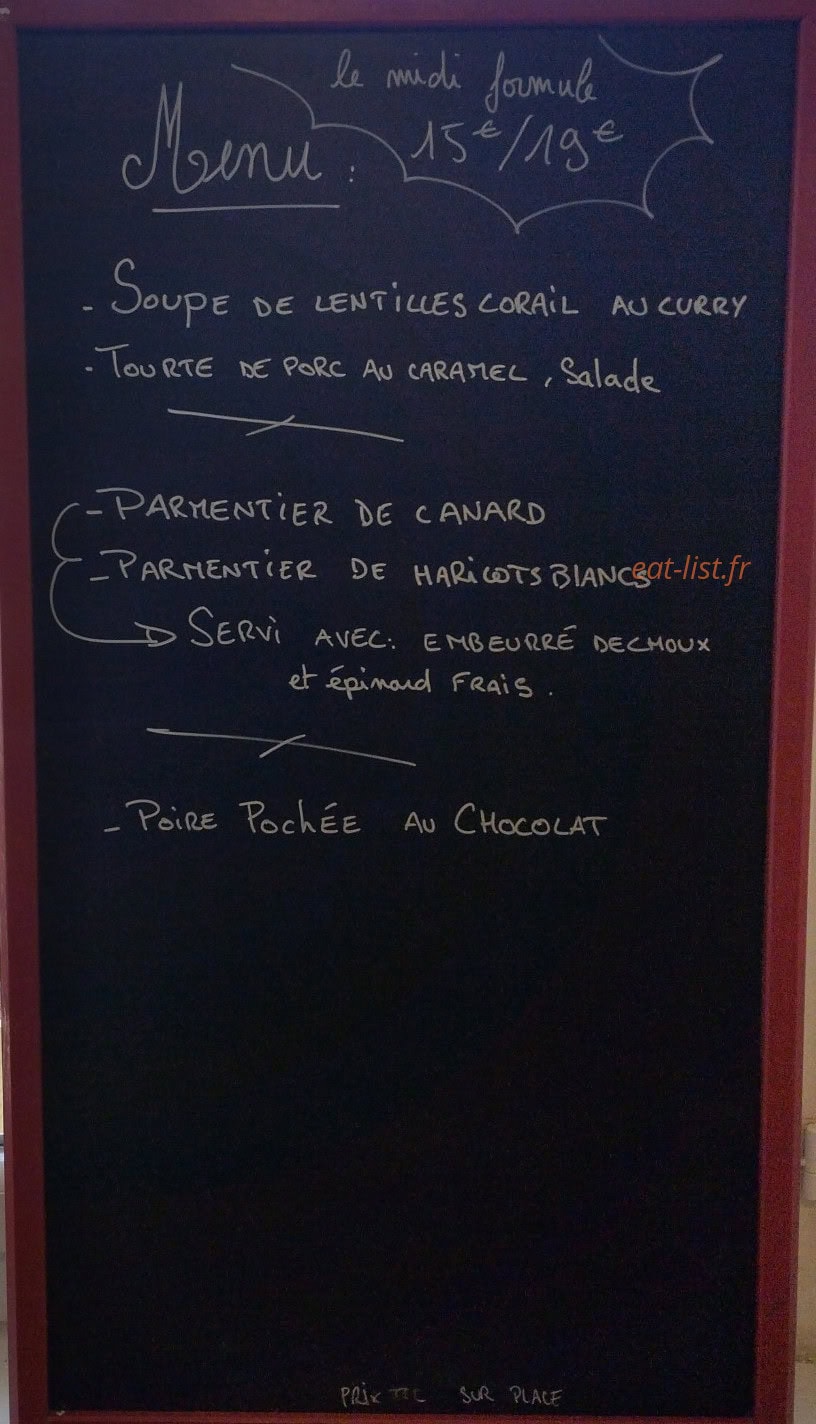 le midi formule
15€/19€
Menu :
- SOUPE DE LENTILLES CORAIL AU CURRY
- TOURTE DE PORC AU CARAMEL, Salade
- PARMENTIER DE CANARD
- PARMENTIER DE HARICOTS BLANCS
eat-list.fr
SERVI AVEC: EMBEURRÉ DE CHOUX
et épinard FRAIS.
- POIRE POCHÉE AU CHOCOLAT
PRIX TTC SUR PLACE